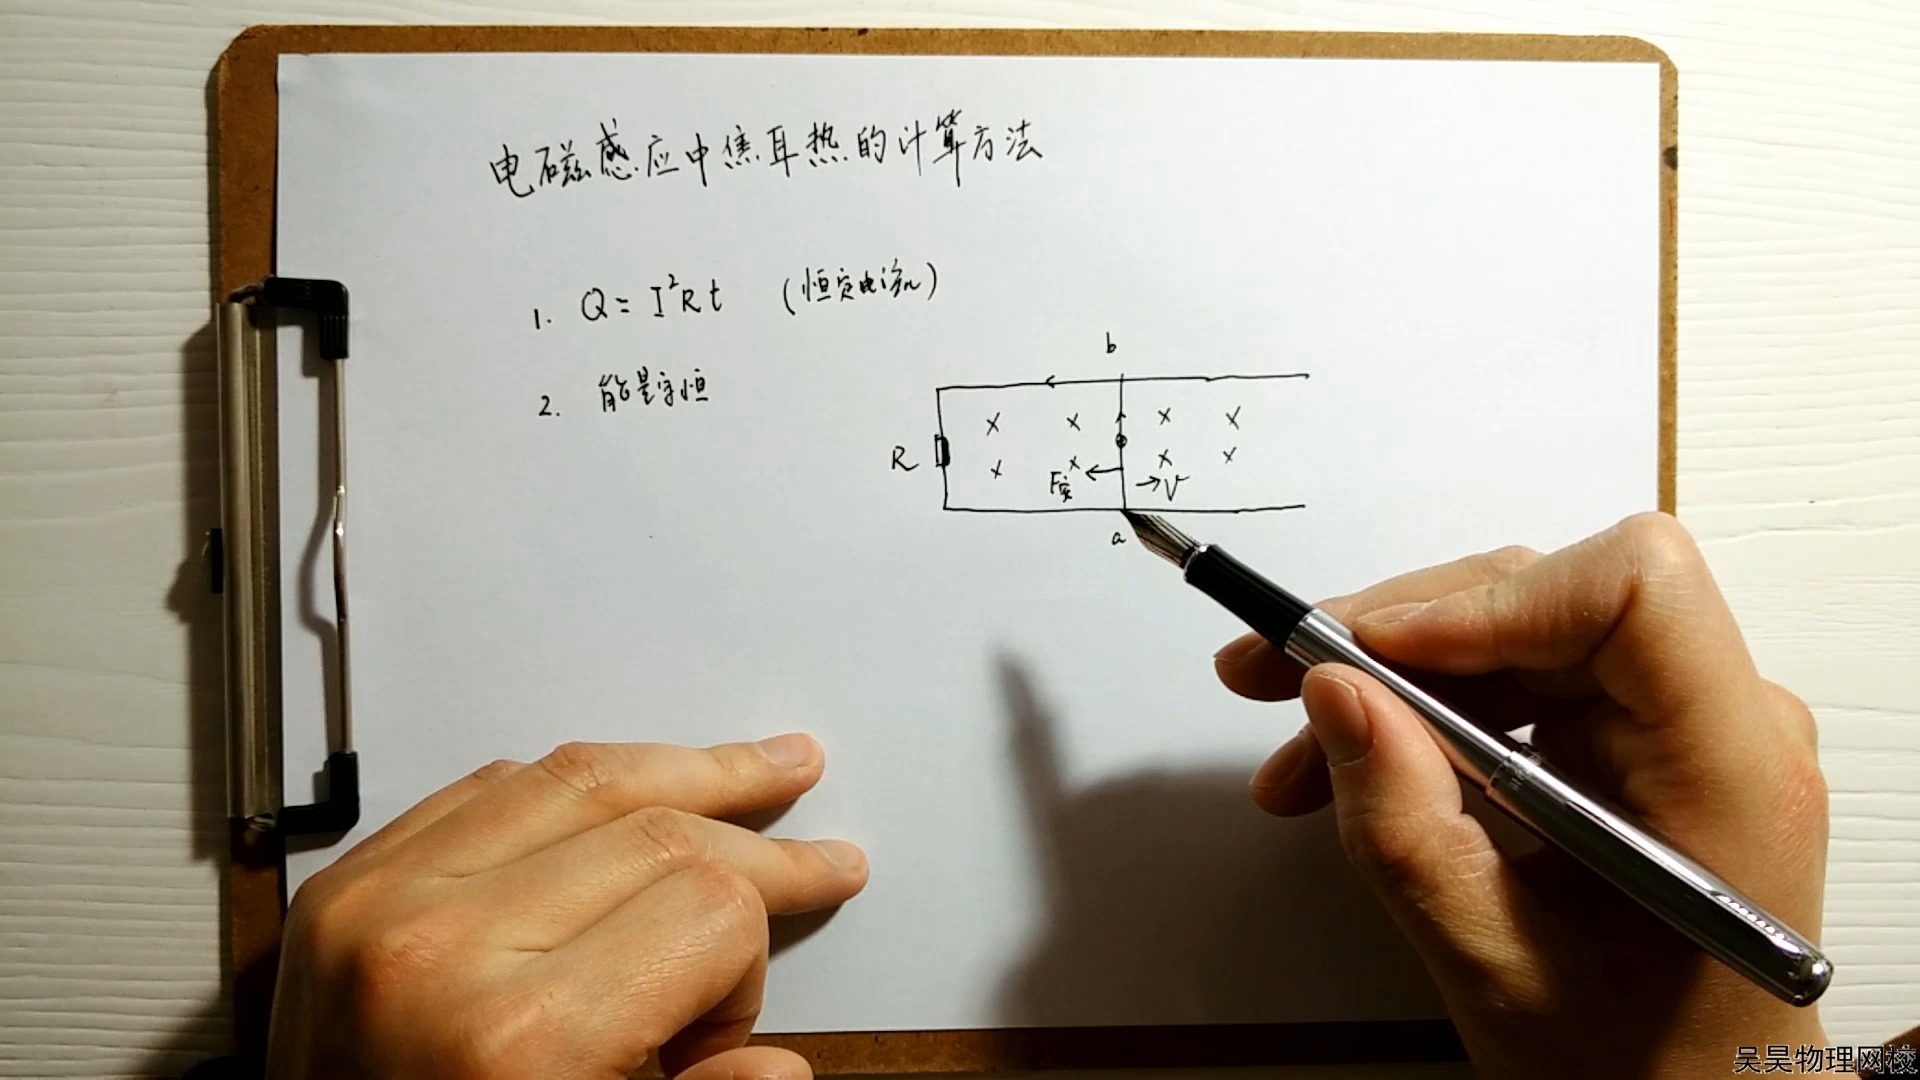 电磁感应中焦耳热的计算方法
1. Q = I²Rt (恒定电流)
2. 能量守恒
b
R
F安
V
a
吴昊物理网校